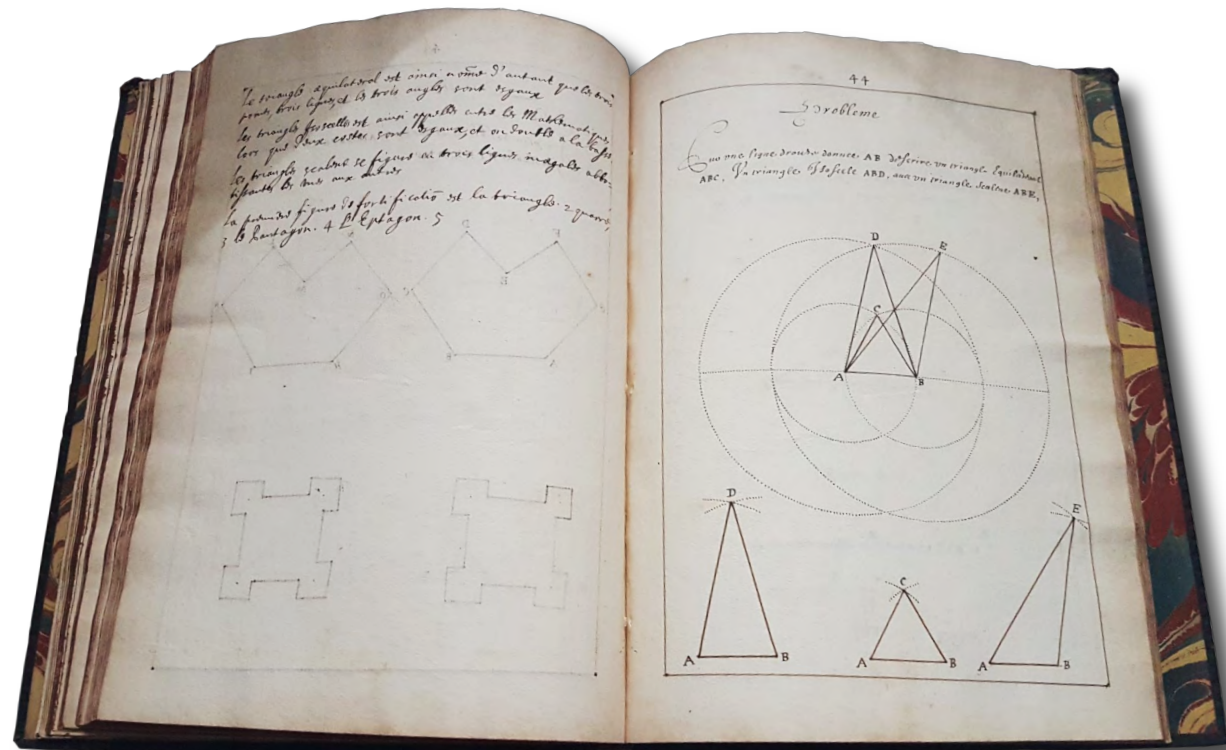 Le triangle equilateral est ainsi nõme d'autant que les trois
trois lignes, et les trois angles sont esgaux
les triangle Isoscelles est ainsi appelles entre les Mathematiques,
lors que deux costes sont esgaux, et on double a la base
les triangle scalene se figure en trois lignes inegales
les unes aux autres
la premiere figure de fortificatiõ est la triangle. 2 quarré,
3 le Pantagon. 4 L'Eptagon. 5
44
Probleme
une ligne droicte donnee AB descrire un triangle Equilateral
ABC, Un triangle Isoscele ABD, un triangle scalene ABE,
D
E
C
A
B
D
A
B
C
A
B
E
A
B